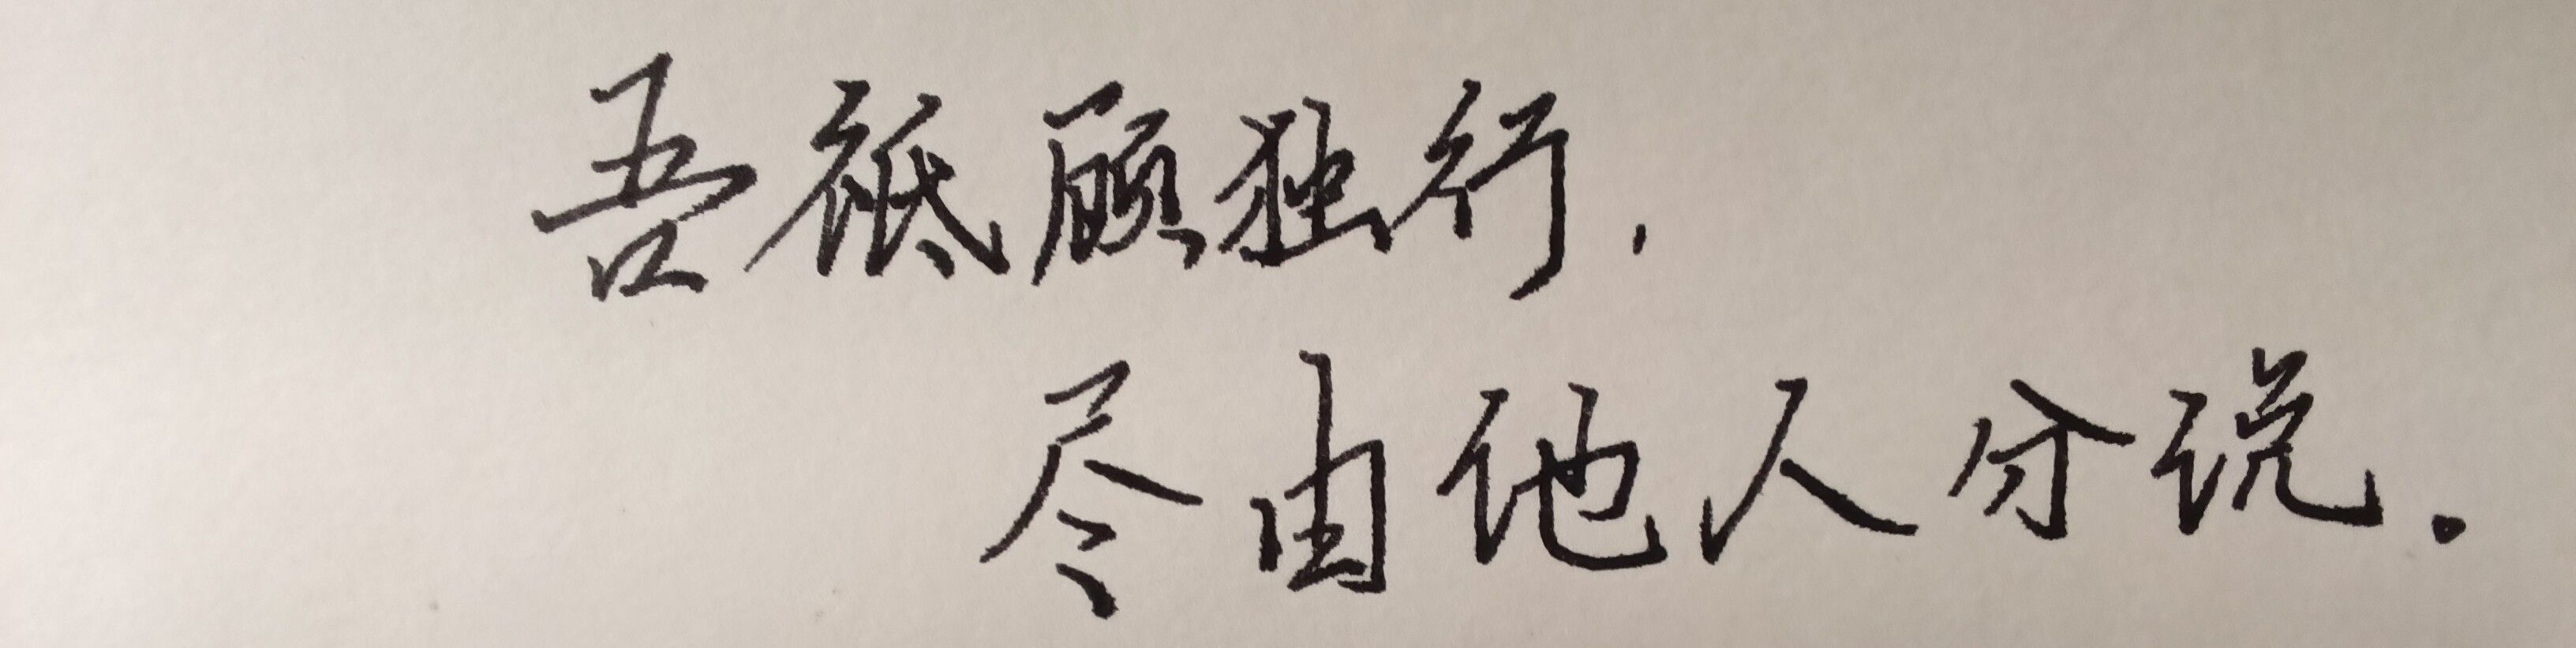 吾祗顾独行，
尽由他人分说。